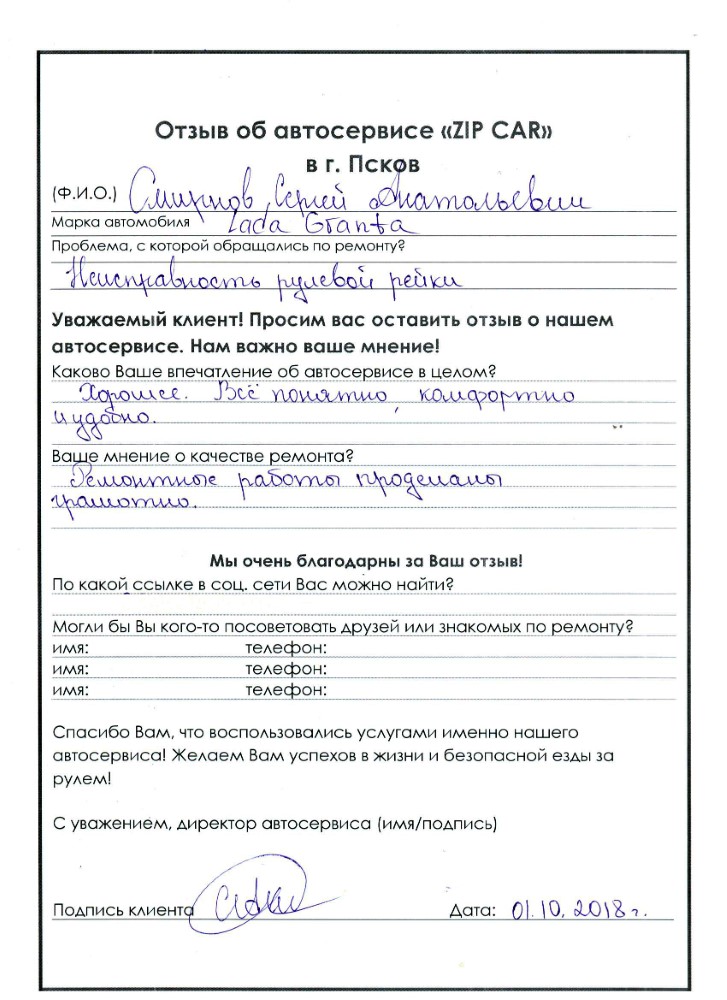 Отзыв об автосервисе «ZIP CAR»
в г. Псков
(Ф.И.О.) Смирнов Сергей Анатольевич
Марка автомобиля Lada Granta
Проблема, с которой обращались по ремонту?
Неисправность рулевой рейки
Уважаемый клиент! Просим вас оставить отзыв о нашем
автосервисе. Нам важно ваше мнение!
Каково Ваше впечатление об автосервисе в целом?
Хорошее. Всё понятно, комфортно
и удобно.
Ваше мнение о качестве ремонта?
Ремонтные работы проделаны
грамотно.
Мы очень благодарны за Ваш отзыв!
По какой ссылке в соц. сети Вас можно найти?
Могли бы Вы кого-то посоветовать друзей или знакомых по ремонту?
имя: телефон:
имя: телефон:
имя: телефон:
Спасибо Вам, что воспользовались услугами именно нашего
автосервиса! Желаем Вам успехов в жизни и безопасной езды за
рулем!
С уважением, директор автосервиса (имя/подпись)
Подпись клиента Дата: 01.10.2018 г.